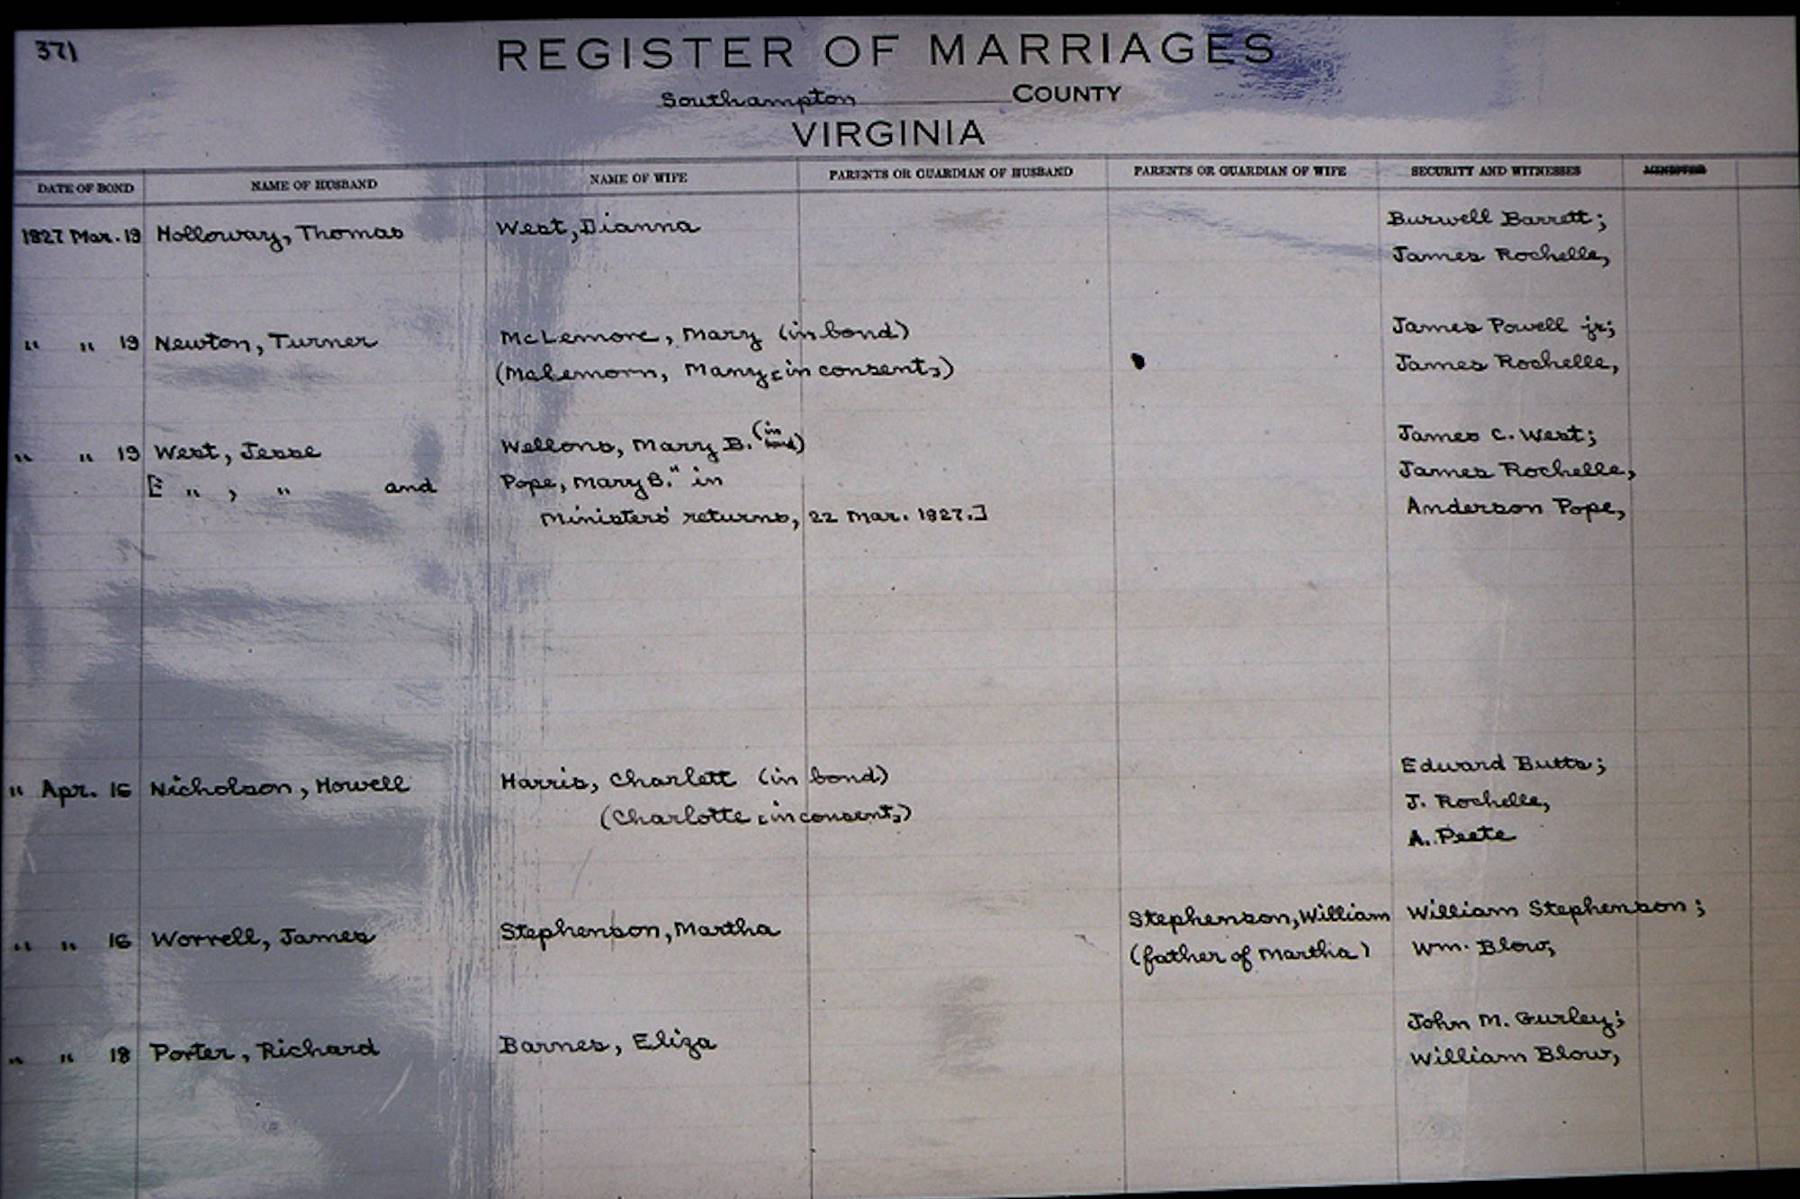 371
REGISTER OF MARRIAGES
Southampton COUNTY
VIRGINIA
DATE OF BOND NAME OF HUSBAND NAME OF WIFE PARENTS OR GUARDIAN OF HUSBAND PARENTS OR GUARDIAN OF WIFE SECURITY AND WITNESSES MINISTER
1827 Mar. 19 Holloway, Thomas West, Dianna Burwell Barrett;
James Rochelle,
" " 19 Newton, Turner McLemore, Mary (in bond) James Powell jr;
(McLemorn, Many [in consent]) James Rochelle,
" " 19 West, Jesse Wellons, Mary B. (in bond) James C. West;
[ " , " and Pope, Mary B." in James Rochelle,
Ministers' returns, 22 Mar. 1827.] Anderson Pope,
" Apr. 16 Nicholson, Howell Harris, Charlett (in bond) Edward Butts;
(Charlotte [in consent]) J. Rochelle,
A. Peete
" " 16 Worrell, James Stephenson, Martha Stephenson, William William Stephenson;
(father of Martha) Wm. Blow;
" " 18 Porter, Richard Barnes, Eliza John M. Gurley;
William Blow,